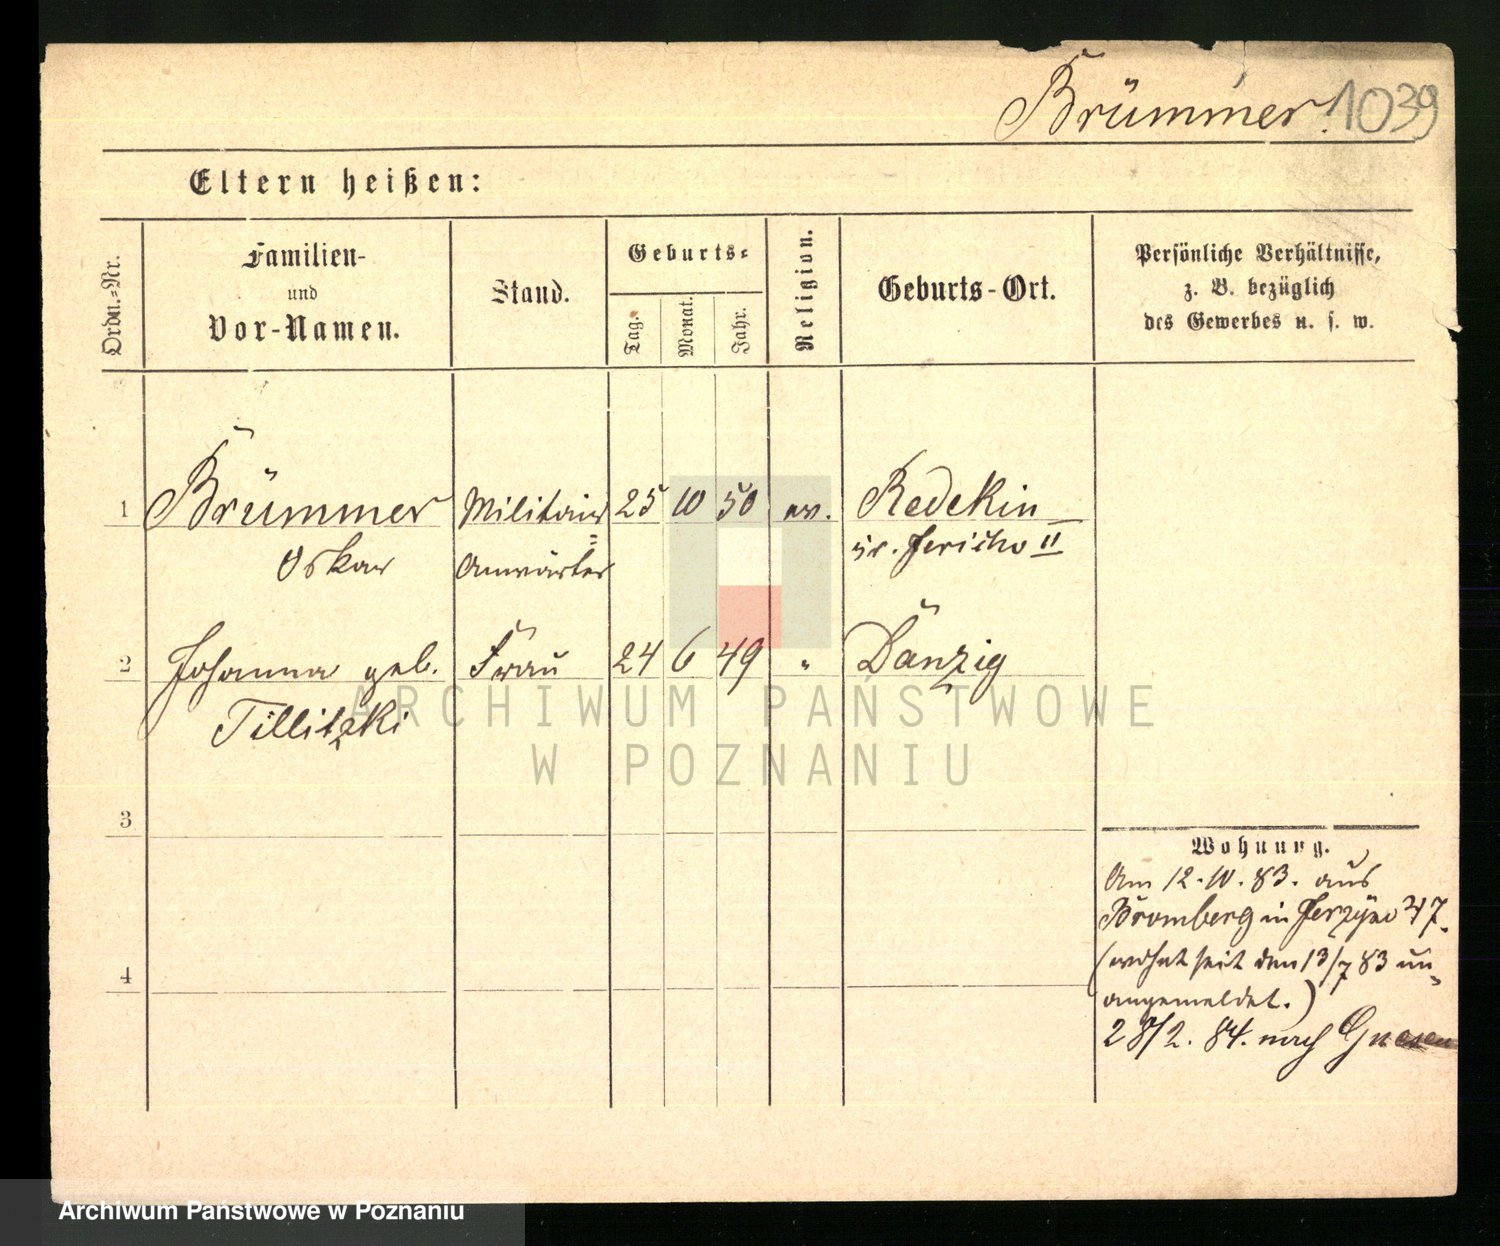 Brümmer. 1039
Eltern heißen:
Ordn.-Nr.
Familien-
und
Vor-Namen.
Stand.
Geburts-
Tag.
Monat.
Jahr.
Religion.
Geburts-Ort.
Persönliche Verhältnisse,
z. B. bezüglich
des Gewerbes u. s. w.
1 Brümmer Militair 25 10 50 ev. Redekin
Oskar Anwärter Kr. Jericho II
2 Johanna geb. Frau 24 6 49 " Danzig
Tillitzki
3
4
Wohnung.
Am 12.10.83. aus
Bromberg in Jerzyce 47.
(wohnt seit dem 13/7 83 un-
angemeldet.)
28/2. 84. nach Gnesen
ARCHIWUM PAŃSTWOWE
W POZNANIU
Archiwum Państwowe w Poznaniu